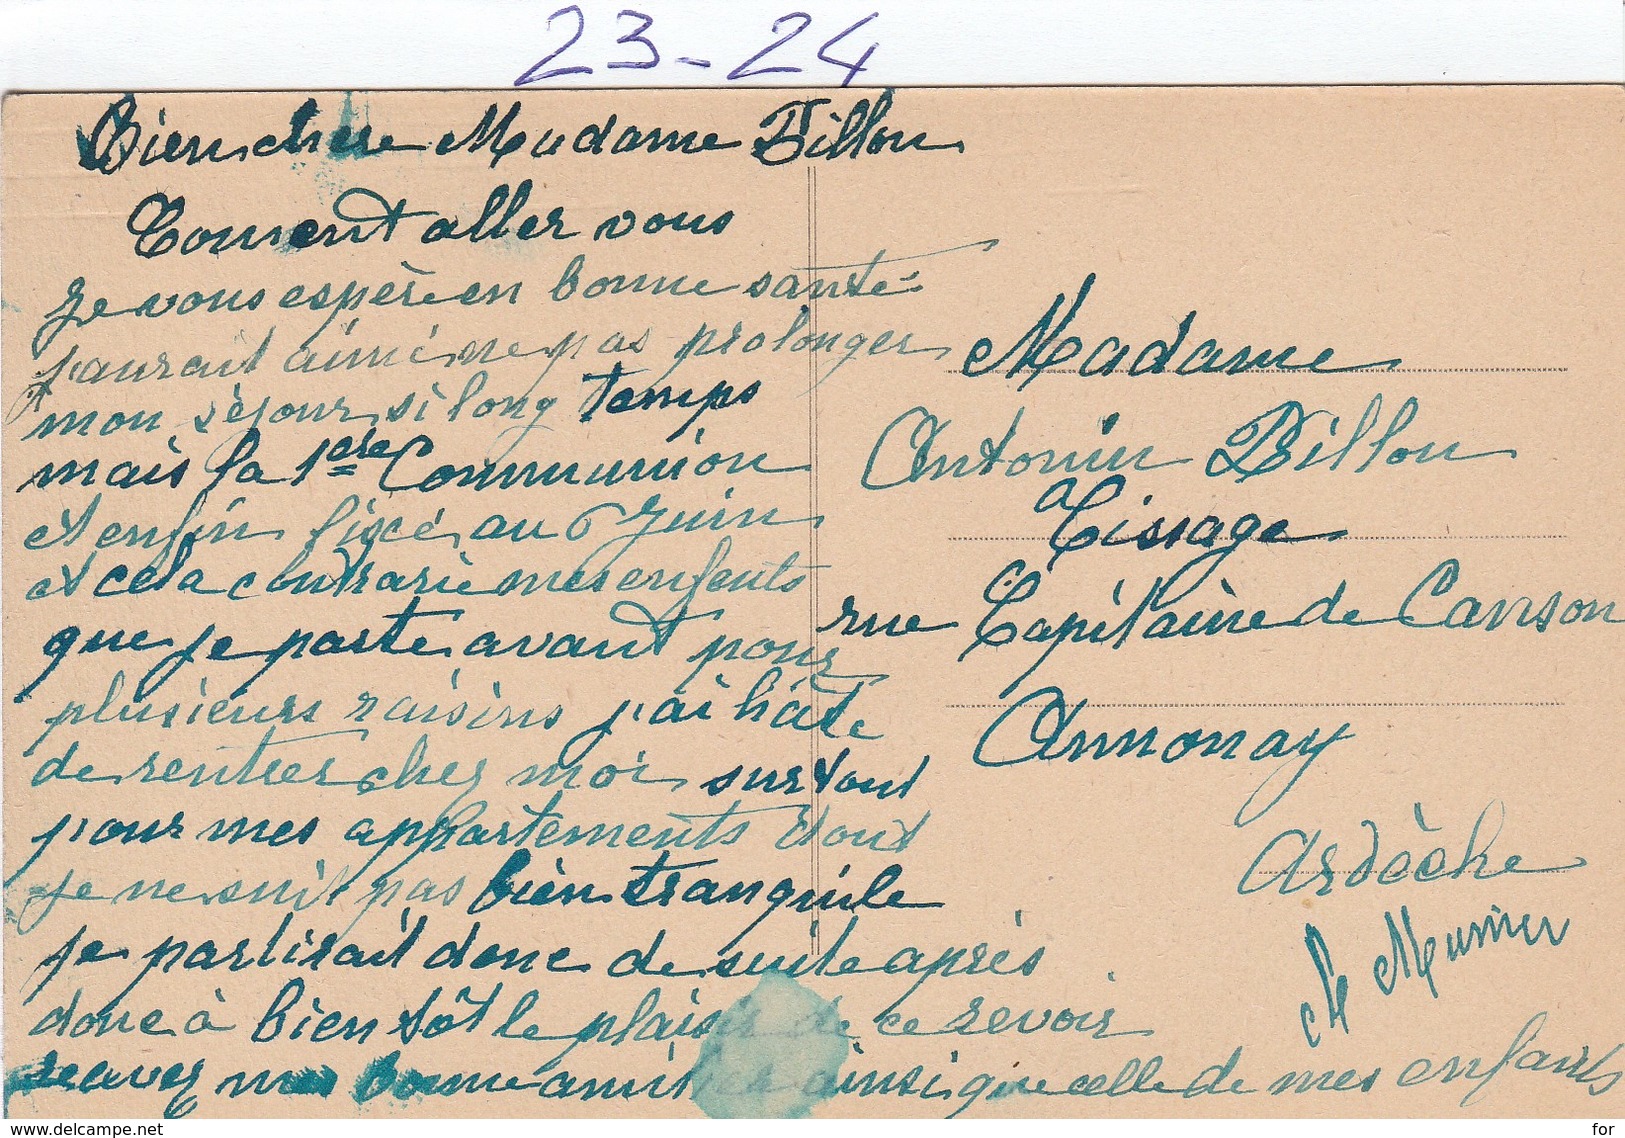 23-24
Bien chere Madame Dillon
Coment aller vous
Je vous espère en bonne santé
j'aurait aimé ne pas prolonger
mon séjour si long temps
mais la 1ère Communion
et enfin fixé au 6 Juin
et cela contrarie mes enfents
que je parte avant pour
plusieurs raisins j'ai hâte
de rentrer chez moi surtout
pour mes appartements dont
je ne suit pas bien tranquile
je partirait donc de suite après
donc à bien tôt le plaisir de ce revoir
recevez mes bonne amitiés ainsi que celle de mes enfants
Madame
Antonin Dillon
Tissage
rue Capitaine de Canson
Annonay
Ardèche
Munier
www.delcampe.net
for